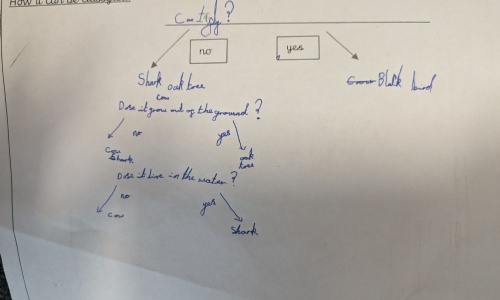 How it can be
Can it fly?
no
yes
Shark oak tree
cow
Blatk bird
Dose it grow out of the ground?
no
yes
cow
shark
oak
tree
Dose it live in the water?
no
yes
cow
Shark